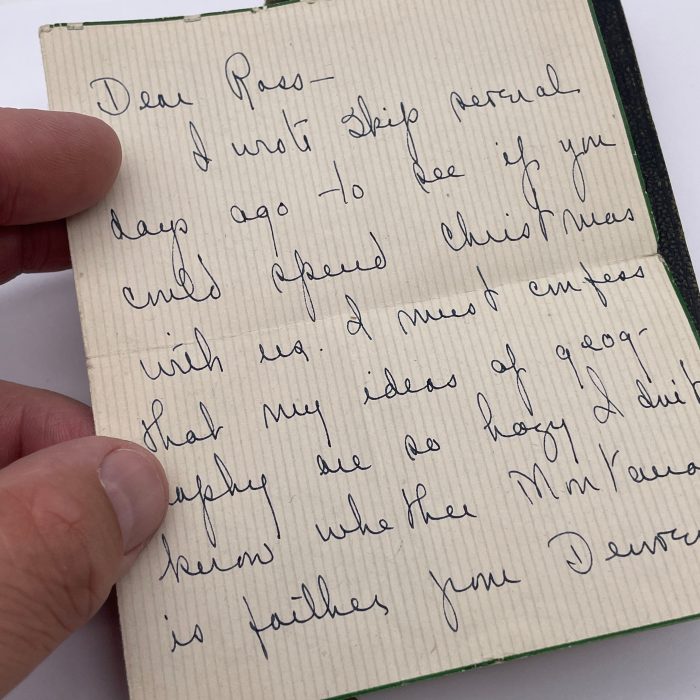 Dear Ross—
I wrote Skip several
days ago to see if you
could spend Christmas
with us. I must confess
that my ideas of geog-
raphy are so hazy I don't
know whether Montana
is farther from Denver